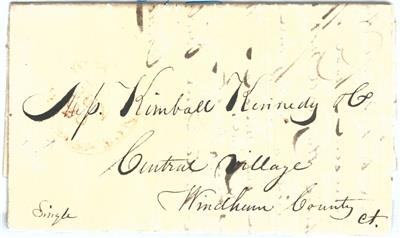 Mess. Kimball Kennedy & Co
Central Village
Windham County
Ct.
Single